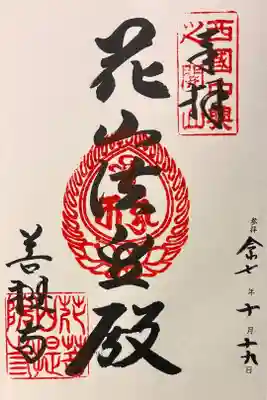 西國中興
之開山
奉拝
花山法皇殿
菩提寺
参拝 令七年十月十九日